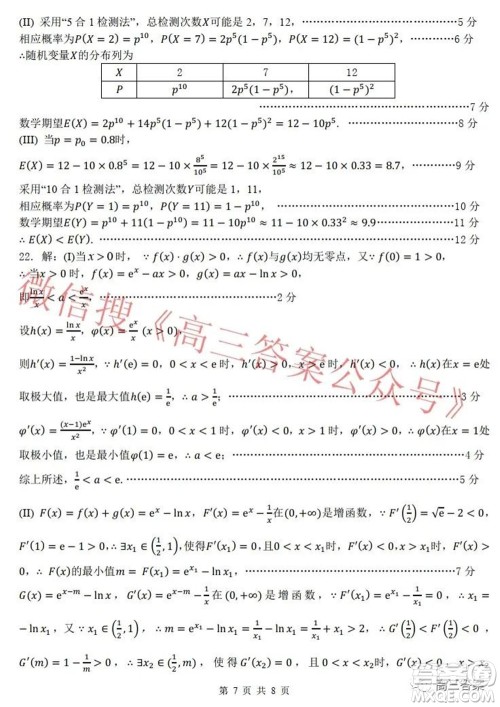 (II) 采用“5 合 1 检测法”，总检测次数X可能是 2，7，12，……5 分
相应概率为P(X = 2) = p^10，P(X = 7) = 2p^5(1 − p^5)，P(X = 12) = (1 − p^5)^2，……6 分
∴随机变量X的分布列为
X 2 7 12
P p^10 2p^5(1 − p^5)， (1 − p^5)^2
……7 分
数学期望E(X) = 2p^10 + 14p^5(1 − p^5) + 12(1 − p^5)^2 = 12 − 10p^5．……8 分
(III) 当p = p₀ = 0.8时，
E(X) = 12 − 10 × 0.8^5 = 12 − 10 × 8^5/10^5 = 12 − 10 × 2^15/10^5 ≈ 12 − 10 × 0.33 = 8.7，……9 分
采用“10 合 1 检测法”，总检测次数Y可能是 1，11，
相应概率为P(Y = 1) = p^10，P(Y = 11) = 1 − p^10，……10 分
数学期望E(Y) = p^10 + 11(1 − p^10) = 11 − 10p^10 ≈ 11 − 10 × 0.33^2 ≈ 9.9……11 分
∴ E(X) < E(Y)．……12 分
22. 解：(I)当x > 0时，∵ f(x) · g(x) > 0，∴ f(x)与g(x)均无零点，又∵ f(0) = 1 > 0，
∴当x > 0时，f(x) = e^x − ax > 0，g(x) = ax − ln x > 0，
即 ln x/x < a < e^x/x，……2 分
设h(x) = ln x/x，φ(x) = e^x/x (x > 0)，
则h′(x) = (1−ln x)/x^2，∵ h′(e) = 0，0 < x < e时，h′(x) > 0，x > e时，h′(x) < 0，∴ h(x)在x = e处
取极大值，也是最大值h(e) = 1/e，∴ a > 1/e；……3 分
φ′(x) = (x−1)e^x/x^2，∵ φ′(1) = 0，0 < x < 1时，φ′(x) < 0，x > 1时，φ′(x) > 0，∴ φ(x)在x = 1处
取极小值，也是最小值φ(1) = e，∴ a < e．……4 分
综上所述，1/e < a < e.……5 分
(II) F(x) = f(x) + g(x) = e^x − ln x，F′(x) = e^x − 1/x在(0, +∞)是增函数，∵ F′(1/2) = √e − 2 < 0，
F′(1) = e − 1 > 0，∴ ∃x₁ ∈ (1/2, 1)，使得F′(x₁) = 0且0 < x < x₁时，F′(x) < 0，x > x₁时，F′(x) >
0，∴ F(x)的最小值m = F(x₁) = e^x₁ − ln x₁，……7 分
G(x) = e^(x−m) − ln x，G′(x) = e^(x−m) − 1/x在(0, +∞)是增函数，∵ F′(x₁) = e^x₁ − 1/x₁ = 0，∴ x₁ =
− ln x₁，又∵ x₁ ∈ (1/2, 1)，∴ m = e^x₁ − ln x₁ = 1/x₁ + x₁ > 2，∴ G′(1/2) < F′(1/2) < 0，
G′(m) = 1 − 1/m > 0，∴ ∃x₂ ∈ (1/2, m)，使得G′(x₂) = 0且0 < x < x₂时，G′(x) < 0，
第 7 页 共 8 页
微信搜《高三答案公众号》
高三答案